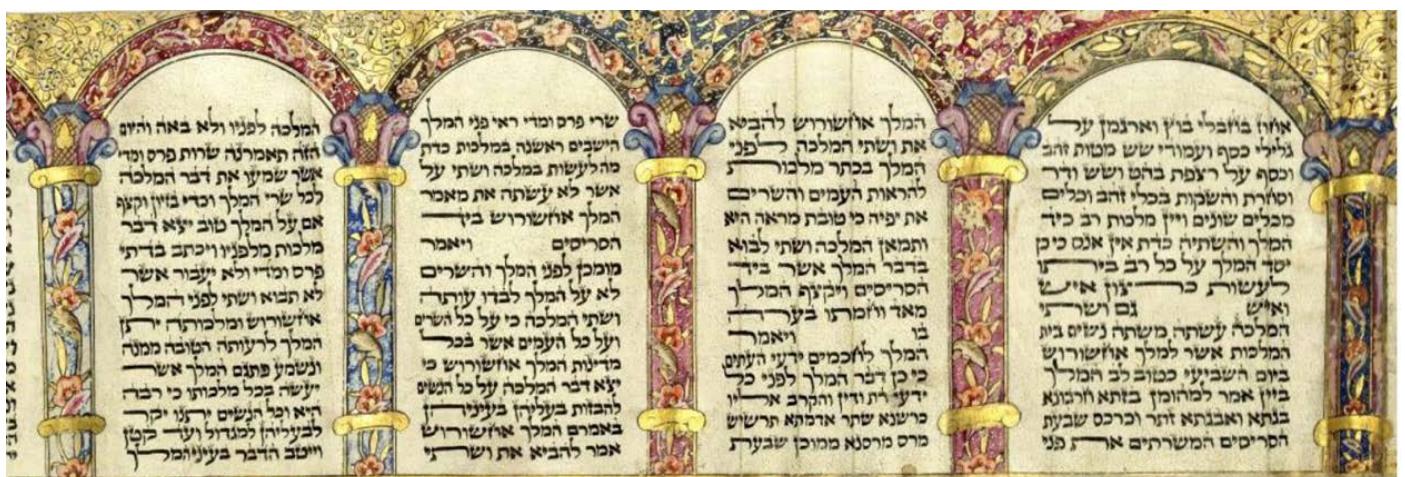 אחוז בחבלי בוץ וארגמן על
גלילי כסף ועמודי שש מטות זהב
וכסף על רצפת בהט ושש ודר
וסחרת והשקות בכלי זהב וכלים
מכלים שונים ויין מלכות רב כיד
המלך והשתיה כדת אין אנס כי כן
יסד המלך על כל רב ביתו
לעשות כרצון איש
ואיש גם ושתי
המלכה עשתה משתה נשים בית
המלכות אשר למלך אחשורוש
ביום השביעי כטוב לב המלך
ביין אמר למהומן בזתא חרבונא
בגתא ואבגתא זתר וכרכס שבעת
הסריסים המשרתים את פני
המלך אחשורוש להביא
את ושתי המלכה לפני
המלך בכתר מלכות
להראות העמים והשרים
את יפיה כי טובת מראה היא
ותמאן המלכה ושתי לבוא
בדבר המלך אשר ביד
הסריסים ויקצף המלך
מאד וחמתו בערה
בו ויאמר
המלך לחכמים ידעי העתים
כי כן דבר המלך לפני כל
ידעי דת ודין והקרב אליו
כרשנא שתר אדמתא תרשיש
מרס מרסנא ממוכן שבעת
שרי פרס ומדי ראי פני המלך
הישבים ראשנה במלכות כדת
מה לעשות במלכה ושתי על
אשר לא עשתה את מאמר
המלך אחשורוש ביד
הסריסים ויאמר
מומכן לפני המלך והשרים
לא על המלך לבדו עותה
ושתי המלכה כי על כל השרים
ועל כל העמים אשר בכל
מדינות המלך אחשורוש כי
יצא דבר המלכה על כל הנשים
להבזות בעליהן בעיניהן
באמרם המלך אחשורוש
אמר להביא את ושתי
המלכה לפניו ולא באה והיום
הזה תאמרנה שרות פרס ומדי
אשר שמעו את דבר המלכה
לכל שרי המלך וכדי בזיון וקצף
אם על המלך טוב יצא דבר
מלכות מלפניו ויכתב בדתי
פרס ומדי ולא יעבור אשר
לא תבוא ושתי לפני המלך
אחשורוש ומלכותה יתן
המלך לרעותה הטובה ממנה
ונשמע פתגם המלך אשר
יעשה בכל מלכותו כי רבה
היא וכל הנשים יתנו יקר
לבעליהן למגדול ועד קטן
וייטב הדבר בעיני המלך